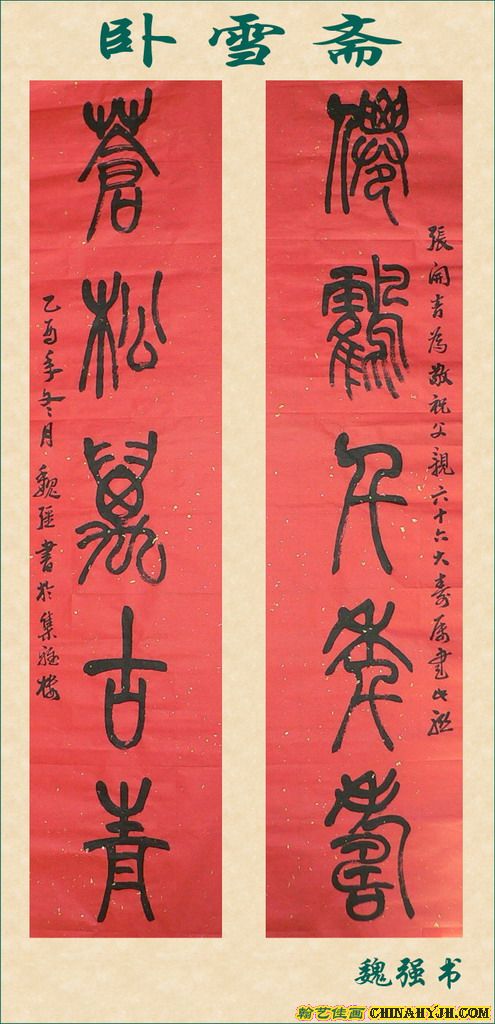 卧雪斋
僊鶴千年壽
張開青為敬祝父親六十六大壽屬書此聯
蒼松萬古青
乙酉年冬月魏强書於集雅樓
魏强书
翰艺佳画 CHINAHYJH.COM